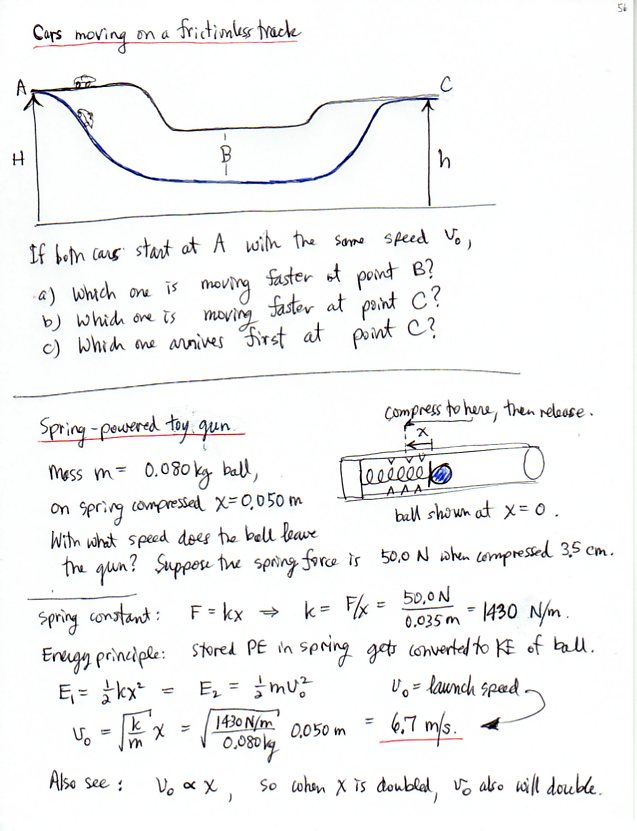 56
Cars moving on a frictionless track
A
C
H
B
h
If both cars start at A with the same speed v₀,
a) Which one is moving faster at point B?
b) Which one is moving faster at point C?
c) Which one arrives first at point C?
Spring-powered toy gun.
compress to here, then release.
x
mass m = 0.080 kg ball,
on spring compressed x = 0.050 m
ball shown at x = 0.
With what speed does the ball leave
the gun? Suppose the spring force is 50.0 N when compressed 3.5 cm.
Spring constant: F = kx ⇒ k = F/x = 50.0 N / 0.035 m = 1430 N/m.
Energy principle: stored PE in spring gets converted to KE of ball.
E₁ = ½kx² = E₂ = ½mv₀² v₀ = launch speed
v₀ = √(k/m) x = √(1430 N/m / 0.080 kg) 0.050 m = 6.7 m/s.
Also see: v₀ ∝ x, so when x is doubled, v₀ also will double.